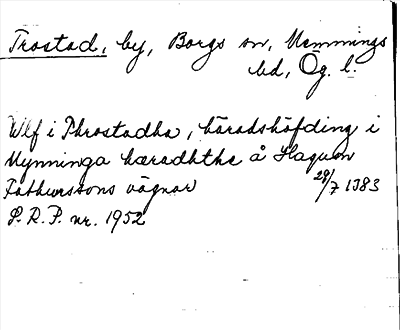 Trostad, by, Borgs sn, Memmings
hd, Ög. l.
Ulf i Throstadha, häradshöfding i
Mynninga hæradhthe å Haquon
Fathurssons vägnar 29/7 1383
S. R. P. nr. 1952